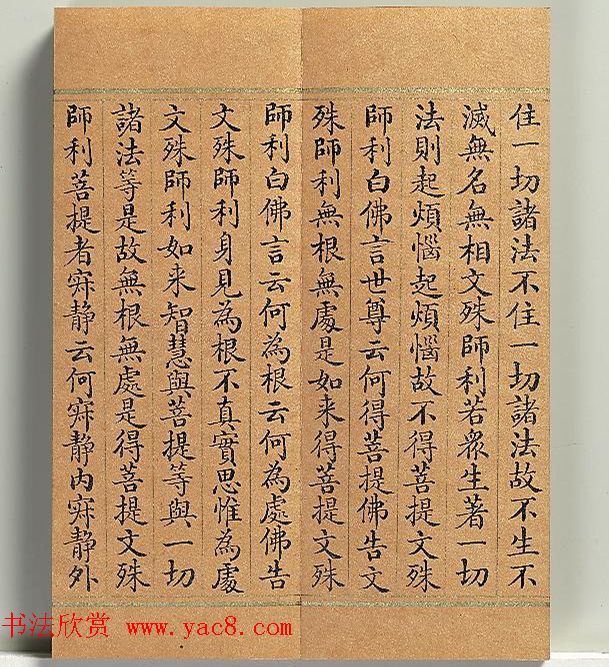 住一切諸法不住一切諸法故不生不
滅無名無相文殊師利若眾生著一切
法則起煩惱起煩惱故不得菩提文殊
師利白佛言世尊云何得菩提佛告文
殊師利無根無處是如来得菩提文殊
師利白佛言云何為根云何為處佛告
文殊師利身見為根不真實思惟為處
文殊師利如来智慧與菩提等與一切
諸法等是故無根無處是得菩提文殊
師利菩提者寂静云何寂静内寂静外
书法欣赏 www.yac8.com